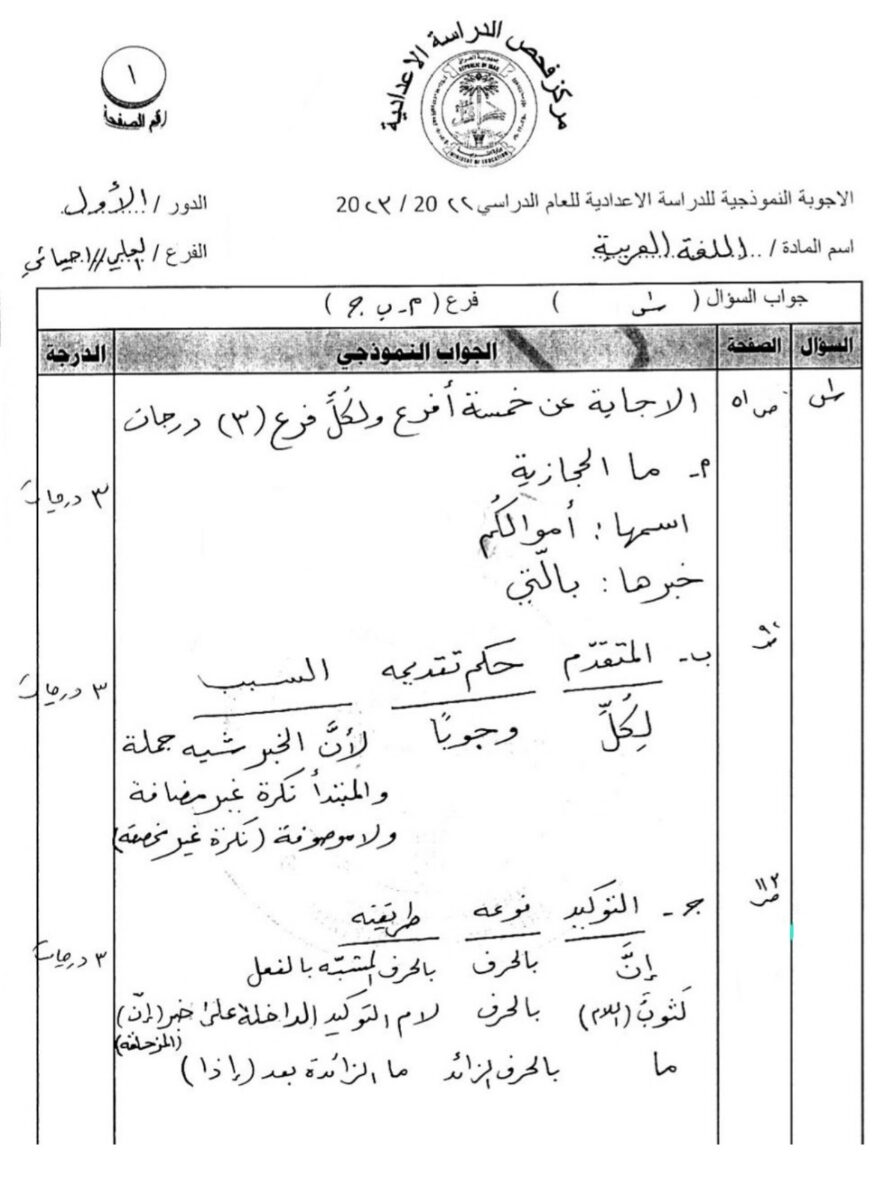 مركز فحص الدراسة الاعدادية
REPUBLIC OF IRAQ
MINISTRY OF EDUCATION
١
رقم الصفحة
الاجوبة النموذجية للدراسة الاعدادية للعام الدراسي ٢٢ 20 / ٢٣ 20
الدور / الأول
اسم المادة / اللغة العربية
الفرع / العلمي // احيائي
جواب السؤال ( س١ ) فرع ( م - ب - ج )
السؤال الصفحة الجواب النموذجي الدرجة
س١ ص ٥١ الاجابة عن خمسة أفرع ولكُلِّ فرع (٣) درجات
م- ما الحجازية
٣ درجات
اسمها : أموالكُم
خبرها : بالّتي
ب- المتقدّم حكم تقديمه السبب
٣ درجات
لِكُلِّ وجوبًا لأنَّ الخبر شبه جملة
والمبتدأ نكرة غير مضافة
ولا موصوفة (نكرة غير مخصصة)
ص ١١٢ ج- التوكيد نوعه طريقته
إنَّ بالحرف بالحرف المشبّه بالفعل ٣ درجات
لَثوبَ (اللام) بالحرف لام التوكيد الداخلة على خبر (إنّ)
(المزحلقة)
ما بالحرف الزائد ما الزائدة بعد (إذا)